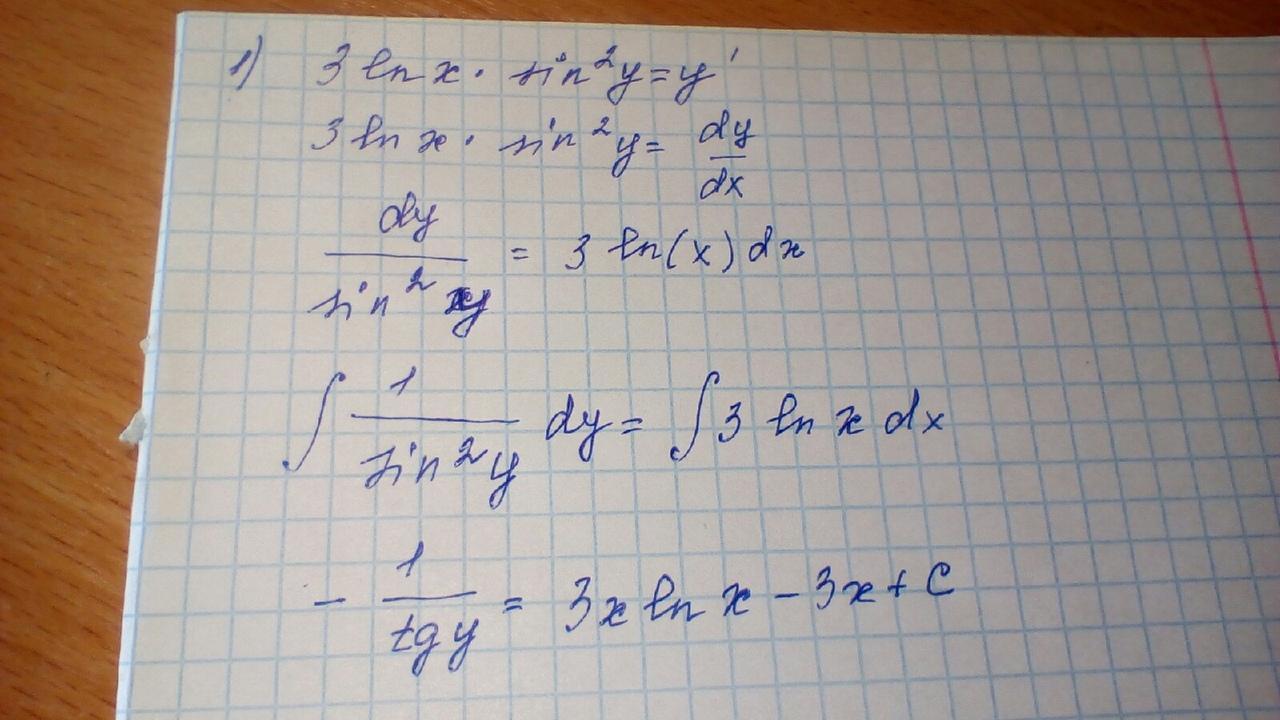 1) 3 ln x · sin²y = y'
3 ln x · sin²y = dy/dx
dy/sin²y = 3 ln(x) dx
∫ 1/sin²y dy = ∫ 3 ln x dx
- 1/tg y = 3x ln x - 3x + C